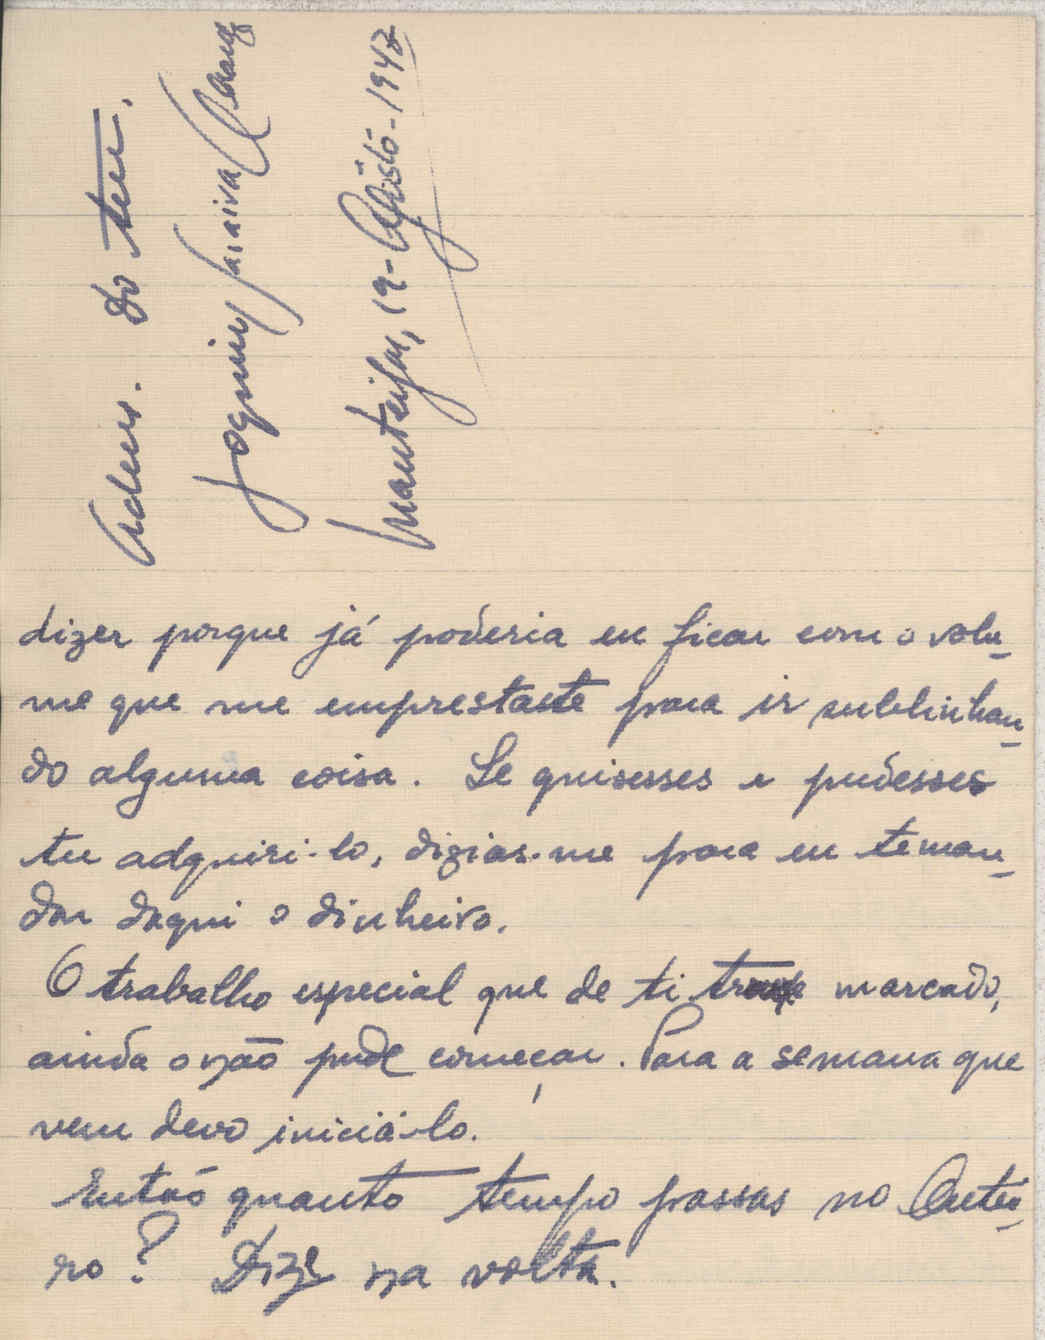 dizer porque já poderia eu ficar com o volu-
me que me emprestaste para ir sublinhan-
do alguma coisa. Se quisesses e pudesses
tu adquiri-lo, dizias-me para eu te man-
dar daqui o dinheiro.
O trabalho especial que de ti trouxe marcado,
ainda o não pude começar. Para a semana que
vem devo iniciá-lo.
Então quanto tempo passas no Outei-
ro? Dize na volta.
Adeus. Do teu.
Joaquim Saraiva
Manteigas, 19-Agôsto-1942